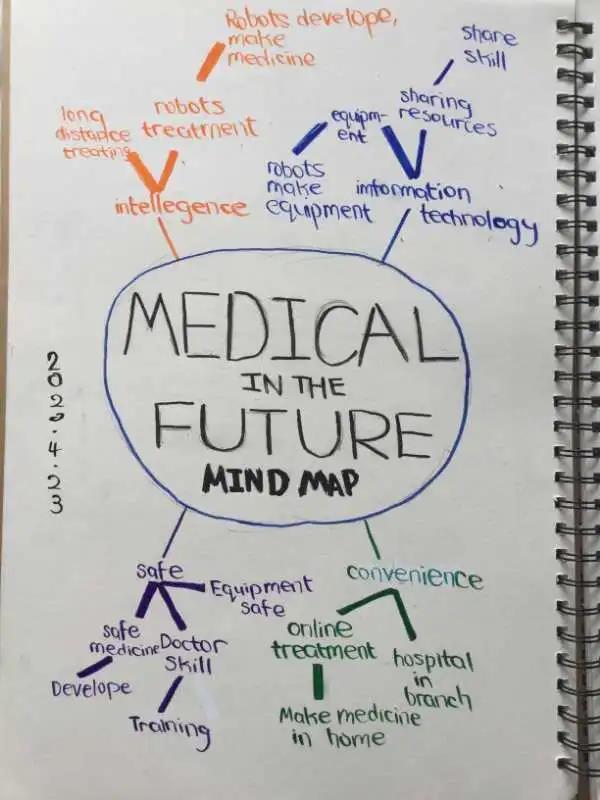 Robots develope,
make
medicine
robots
treatment
long
distance
treating
intellegence
share
skill
sharing
resources
equipm-
ent
robots
make
equipment
imformation
technology
MEDICAL
IN THE
FUTURE
MIND MAP
2022.4.23
safe
Equipment
safe
safe
medicine
Develope
Doctor
skill
Training
convenience
online
treatment
Make medicine
in home
hospital
in
branch